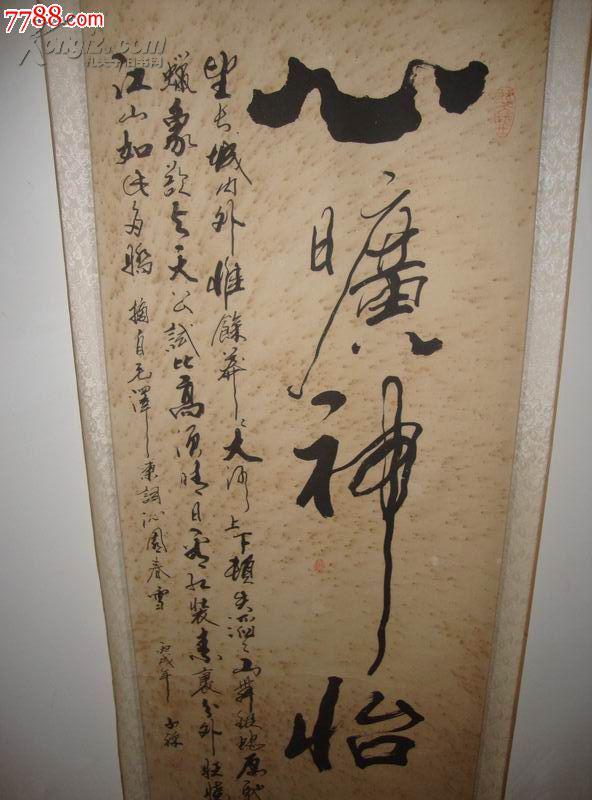 7788.com
Kongfz.com
孔夫子旧书网
心曠神怡
望长城内外惟餘莽々大河上下頓失滔々山舞銀蛇原馳
蠟象欲与天公試比高须晴日看红装素裹分外妖嬈
江山如此多嬌 摘自毛澤东詞沁園春雪
丙戌年